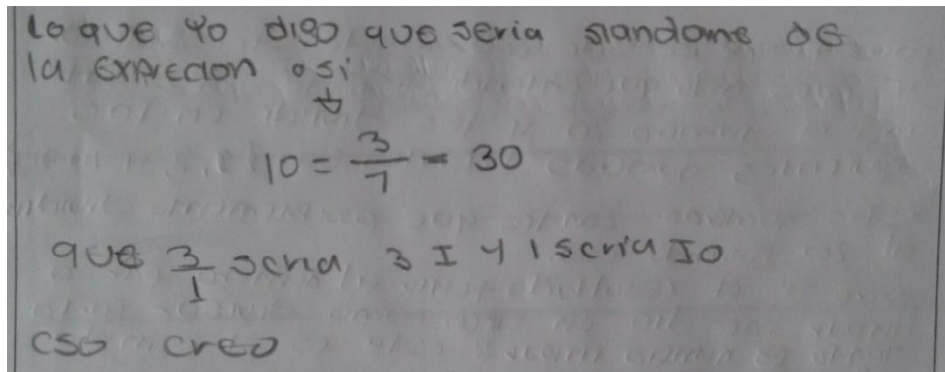 lo que yo digo que seria siandome de
la exprecion asi
↓
10 = 3/1 = 30
que 3/1 seria 3 I y 1 seria I0
eso creo